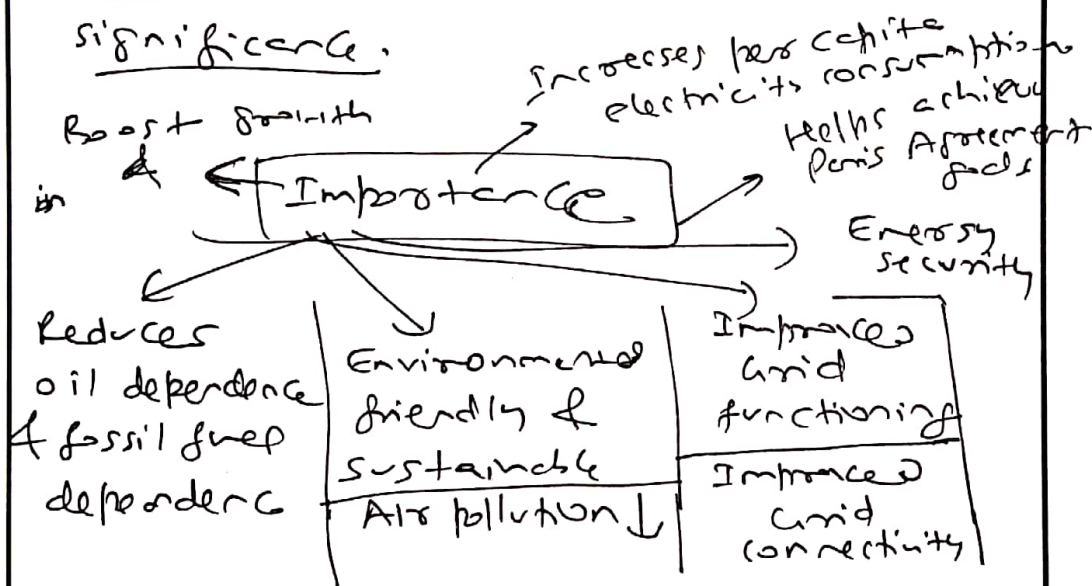 Significance.
Increases per capita
electricity consumption
Boost growth
in
Helps achieve
Paris Agreement
goals
Importance
Energy
security
Reduces
oil dependence
& fossil fuel
dependence
Environmental
friendly &
sustainable
Air pollution ↓
Improves
Grid
functioning
Improves
Grid
connectivity